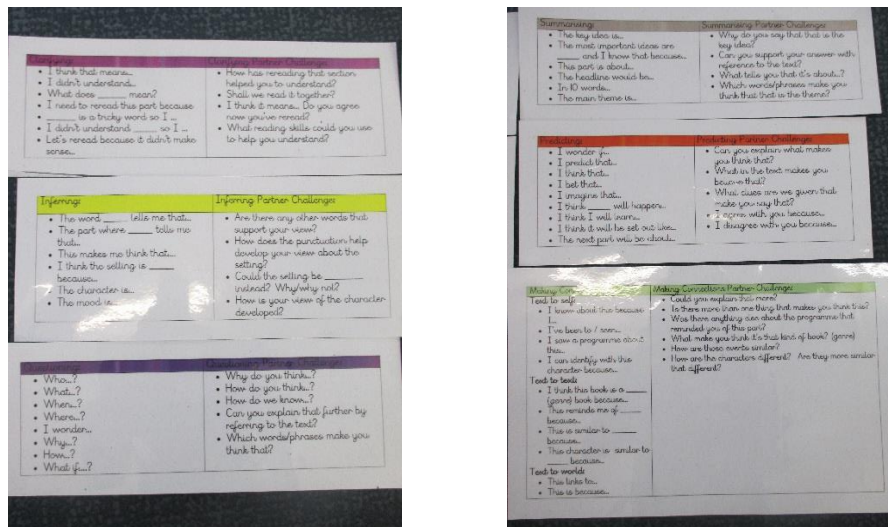 Clarifying:
• I think that means...
• I didn't understand...
• What does _____ mean?
• I need to reread this part because
• _____ is a tricky word so I ...
• I didn't understand _____ so I ...
• Let's reread because it didn't make
sense...
Clarifying Partner Challenge:
• How has rereading that section
helped you to understand?
• Shall we read it together?
• I think it means... Do you agree
now you've reread?
• What reading skills could you use
to help you understand?
Inferring:
• The word _____ tells me that...
• The part where _____ tells me
that...
• This makes me think that...
• I think the setting is _____
because...
• The character is...
• The mood is...
Inferring Partner Challenge:
• Are there any other words that
support your view?
• How does the punctuation help
develop your view about the
setting?
• Could the setting be _____
instead? Why/why not?
• How is your view of the character
developed?
Questioning:
• Who...?
• What...?
• When...?
• Where...?
• I wonder...
• Why...?
• How...?
• What if...?
Questioning Partner Challenge:
• Why do you think...?
• How do you think...?
• How do we know...?
• Can you explain that further by
referring to the text?
• Which words/phrases make you
think that?
Summarising:
• The key idea is...
• The most important ideas are
_____ and I know that because...
• This part is about...
• The headline would be...
• In 10 words...
• The main theme is...
Summarising Partner Challenge:
• Why do you say that that is the
key idea?
• Can you support your answer with
reference to the text?
• What tells you that it's about...?
• Which words/phrases make you
think that that is the theme?
Predicting:
• I wonder if...
• I predict that...
• I think that...
• I bet that...
• I imagine that...
• I think _____ will happen...
• I think I will learn...
• I think it will be set out like...
• The next part will be about...
Predicting Partner Challenge:
• Can you explain what makes
you think that?
• What in the text makes you
believe that?
• What clues are we given that
make you say that?
• I agree with you because...
• I disagree with you because...
Making
Text to self:
• I know about this because
I...
• I've been to / seen...
• I saw a programme about
this...
• I can identify with this
character because...
Text to text:
• I think this book is a _____
(genre) book because...
• This reminds me of _____
because...
• This is similar to _____
because...
• This character is similar to
_____ because...
Text to world:
• This links to...
• This is because...
Making Connections Partner Challenge:
• Could you explain that more?
• Is there more than one thing that makes you think this?
• Was there anything else about the programme that
reminded you of this part?
• What make you think it's that kind of book? (genre)
• How are those events similar?
• How are the characters different? Are they more similar
that different?